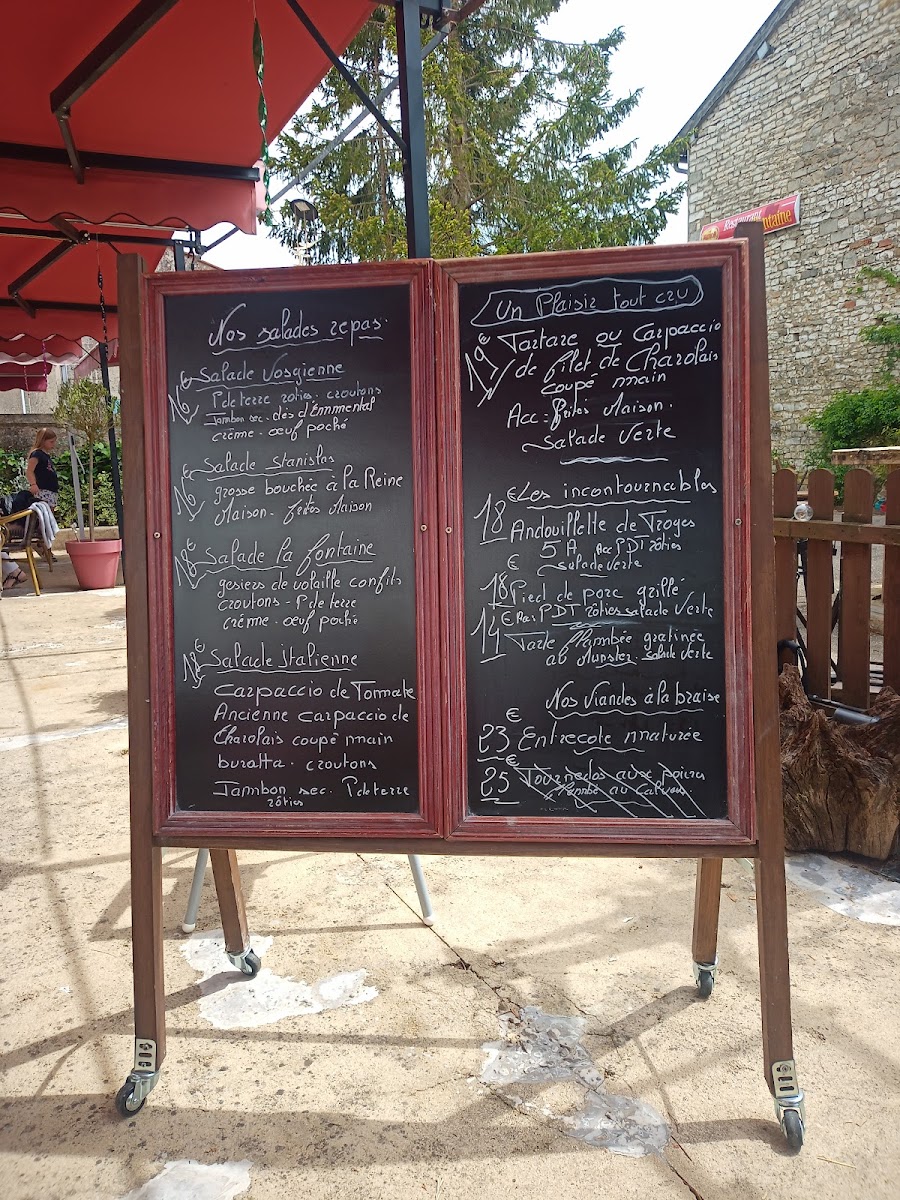 Restaurant
ntaine
Nos salades repas.
16€ Salade Vosgienne
P de terre rôties. croutons
Jambon sec. dés d'Emmental
crème. œuf poché
16€ Salade Stanislas
grosse bouchée à la Reine
Maison. frites Maison
18€ Salade la fontaine
gesiers de volaille confits
croutons - P de terre
crème. œuf poché
18€ Salade italienne
carpaccio de Tomate
Ancienne carpaccio de
Charolais coupé main
buratta. croutons
Jambon sec. P de terre
rôties
Un Plaisir tout cru
19€ Tartare ou Carpaccio
de filet de Charolais
coupé main
Acc: frites Maison.
Salade Verte
Les incontournables
18€ Andouillette de Troyes
5 A Acc PDT rôties
salade verte
18€ Pied de porc grillé
PDT rôties salade Verte
14€ Tarte flambée gratinée
au Munster. salade verte
Nos Viandes à la braise
23€ Entrecote maturée
25€ Tournedos aux poivre
flambé au Calvados.